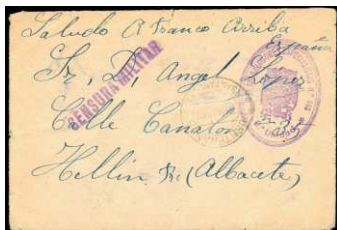 Saludo A Franco Arriba
España
Sr. D. Angel Lopez
CENSURA MILITAR
Calle Canalon
Hellin (Albacete)